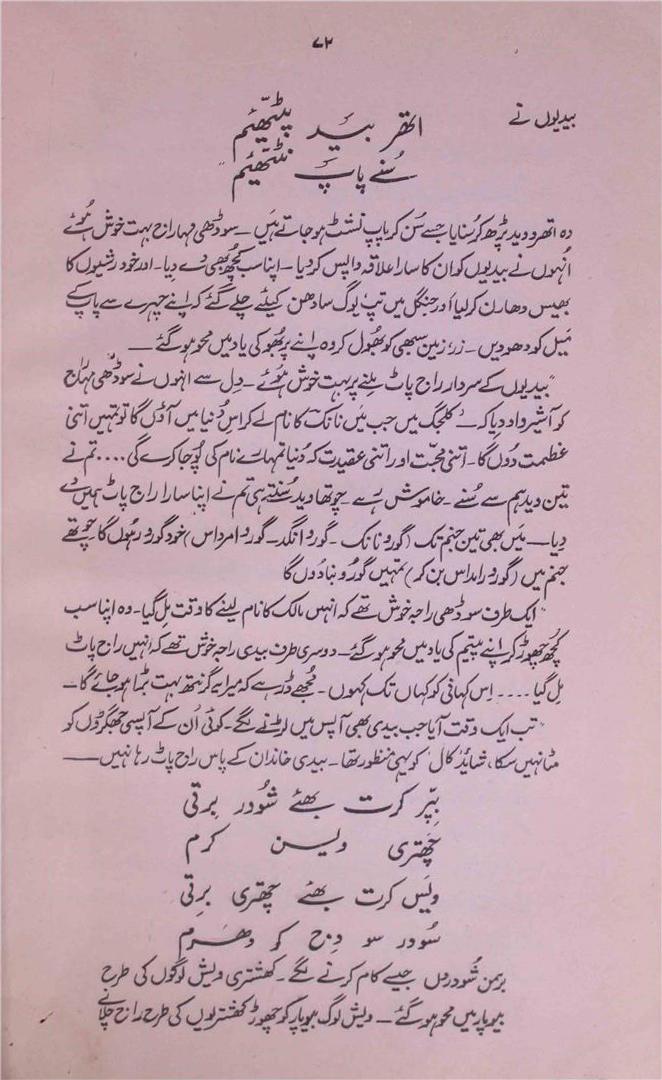 ۷۲
بیدیوں نے
اتھر بید پٹھّیئم
سُنے پاپ نٹھیئم
وہ اتھرو وید پڑھ کر سُنایا جسے سُن کر پاپ نشٹ ہو جاتے ہیں۔ سوڈھی مہاراج بہت خوش ہوئے
اُنہوں نے بیدیوں کو ان کا سارا علاقہ واپس کر دیا۔ اپنا سب کچھ بھی دے دیا۔ اور خود رشیوں کا
بھیس دھارن کر لیا اور جنگل میں تپ یوگ سادھن کیلئے چلے گئے کہ اپنے چہرے سے پاپ کے
میل کو دھو دیں۔ زر، زمین سبھی کو بھول کر وہ اپنے پربھُو کی یاد میں محو ہو گئے —
"بیدیوں کے سردار راج پاٹ ملنے پر بہت خوش ہوئے۔ دِل سے انہوں نے سوڈھی مہاراج
کو آشیرواد دیا کہ — 'کلجُگ میں جب میں نانک کا نام لے کر اس دُنیا میں آؤں گا تو تمہیں اتنی
عظمت دوں گا۔ اتنی محبّت اور اتنی عقیدت کہ دُنیا تمہارے نام کی پُوجا کرے گی .... تم نے
تین وید ہم سے سُنے۔ خاموش رہے۔ چوتھا وید سُنتے ہی تم نے اپنا سارا راج پاٹ ہمیں دے
دیا — میں بھی تین جنم تک (گورو نانک۔ گورو انگد۔ گورو امرداس) خود گورو رہوں گا چوتھے
جنم میں (گورو رامداس بن کر) تمہیں گورو بنا دوں گا
"ایک طرف سوڈھی راجہ خوش تھے کہ انہیں مالک کا نام لینے کا وقت مِل گیا۔ وہ اپنا سب
کُچھ چھوڑ کر اپنے پریتم کی یاد میں محو ہو گئے۔ دوسری طرف بیدی راجہ خوش تھے کہ انہیں راج پاٹ
مِل گیا .... اِس کہانی کو کہاں تک کہوں۔ مُجھے ڈر ہے کہ میرا یہ گرنتھ بہت بڑا ہو جائے گا —
"تب ایک وقت آیا جب بیدی بھی آپس میں لڑنے لگے۔ کوئی اُن کے آپسی جھگڑوں کو
مٹا نہیں سکا، شائد 'کال' کو یہی منظور تھا۔ بیدی خاندان کے پاس راج پاٹ رہا نہیں —
بِپر کرت بھئے شُودر برتی
چھتری ویسن کرم
ویَس کرت بھئے چھتری برتی
سُودر سو دِج کو دھرم
برہمن شُودروں جیسے کام کرنے لگے۔ کھشتری ویش لوگوں کی طرح
بیوپار میں محو ہو گئے — ویش لوگ بیوپار کو چھوڑ کھشتریوں کی طرح راج چلانے